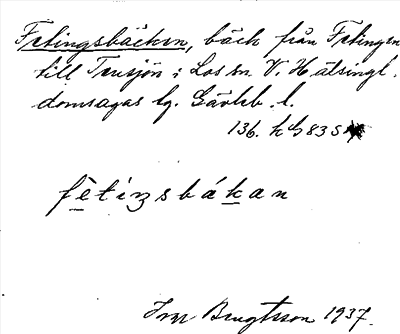 Fetingsbäcken, bäck från Fetingen
till Tensjön i Los sn V. Hälsingl.
domsagas tg. Gävleb. l.
136. h G 83 S
fètiŋsbákan
Ivar Bengtsson 1937.